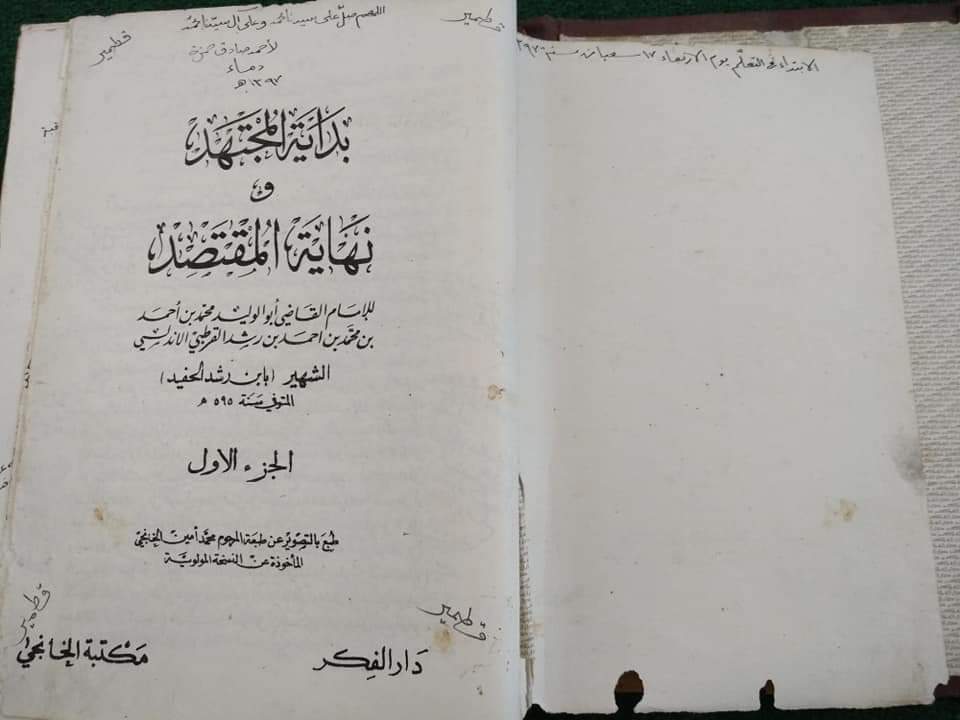 اللهم صل على سيدنا محمد وعلى آل سيدنا محمد
قطمير
قطمير
لأحمد صادق حمزة
دماء
١٣٩٧هـ
بداية المجتهد
و
نهاية المقتصد
للإمام القاضي أبو الوليد محمد بن أحمد
بن محمد بن احمد بن رشد القرطبي الاندلسي
الشهير (بابن رشد الحفيد)
المتوفي سنة ٥٩٥ هـ
الجزء الاول
طبع بالتصوير عن طبعة المرحوم محمد أمين الخانجي
المأخوذة عن النسخة المولوية
قطمير
قطمير
دار الفكر
مكتبة الخانجي
الابتداء في التعلم يوم الاربعاء ١٧ شعبان سنة ١٣٩٧